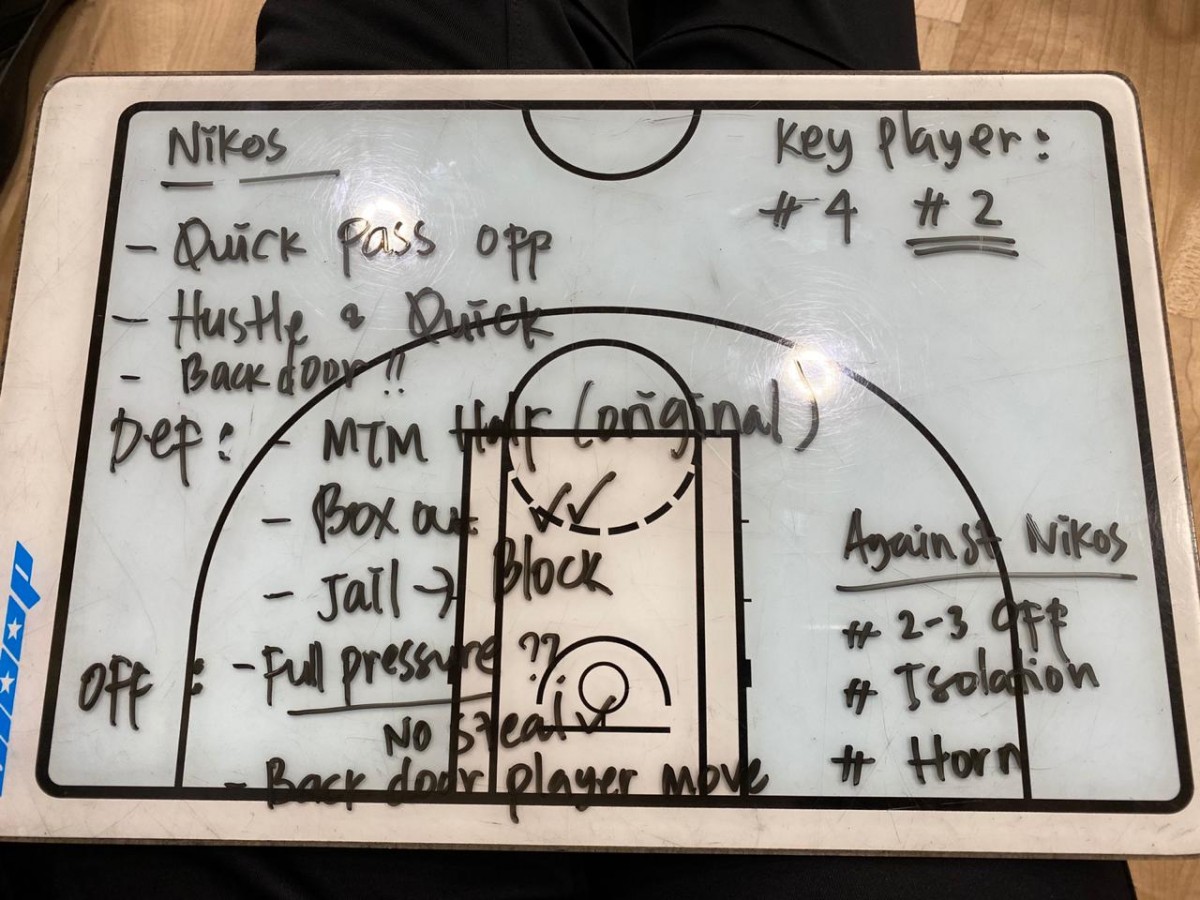 Nikos
- Quick pass off
- Hustle & Quick
- Back door!!
Def: - MTM Half (original)
- Box out ✓✓
- Jail → Block
Off : - Full pressure ??
No steal ✓
- Back door player move
Key Player:
# 4 # 2
Against Nikos
# 2-3 Off
# Isolation
# Horn